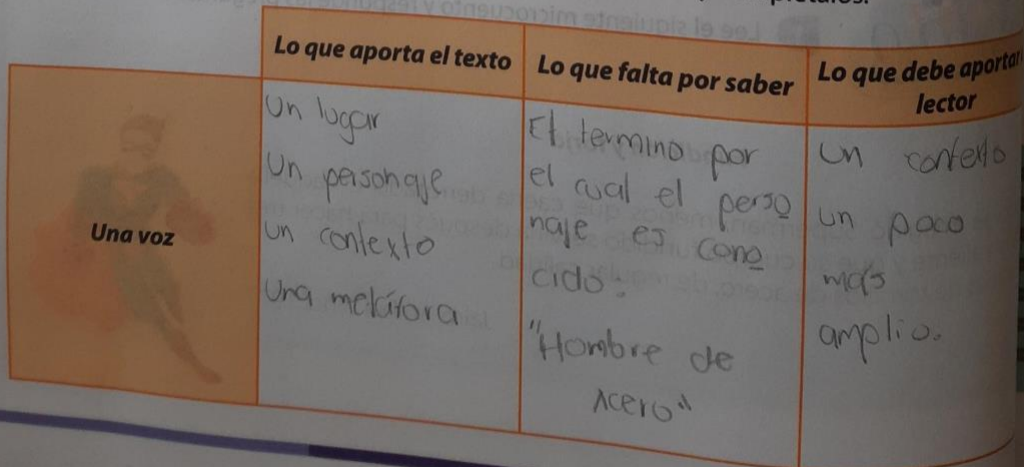 Lo que aporta el texto
Lo que falta por saber
Lo que debe aportar
lector
Una voz
Un lugar
Un personaje
un contexto
Una metáfora
El termino por
el cual el perso
naje es cono
cido:
"Hombre de
Acero"
un contexto
un poco
más
amplio.